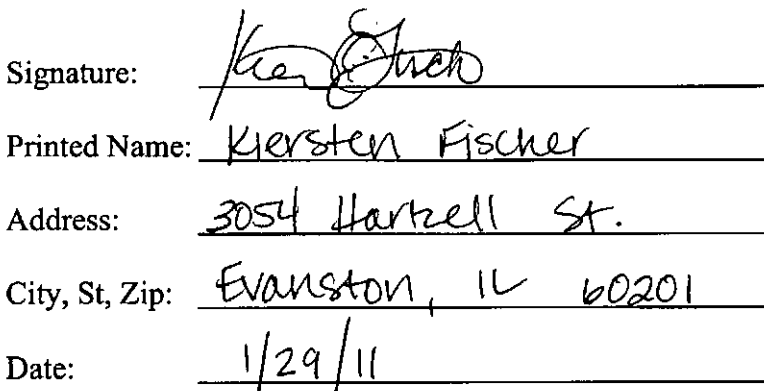 Signature:
Printed Name: Kiersten Fischer
Address: 3054 Hartzell St.
City, St, Zip: Evanston, IL 60201
Date: 1/29/11